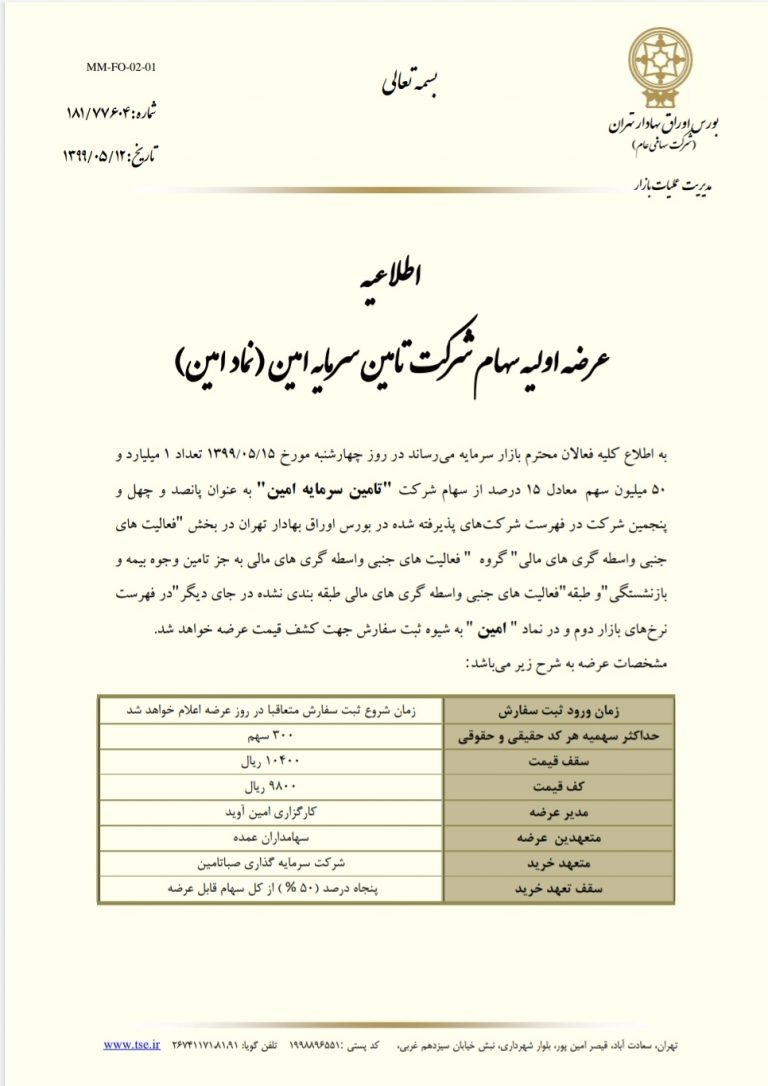 MM-FO-02-01
بسمه تعالی
شماره: ۱۸۱/۷۷۶۰۴
تاریخ: ۱۳۹۹/۰۵/۱۲
بورس اوراق بهادار تهران
(شرکت سهامی عام)
مدیریت عملیات بازار
اطلاعیه
عرضه اولیه سهام شرکت تامین سرمایه امین (نماد امین)
به اطلاع کلیه فعالان محترم بازار سرمایه می‌رساند در روز چهارشنبه مورخ ۱۳۹۹/۰۵/۱۵ تعداد ۱ میلیارد و
۵۰ میلیون سهم معادل ۱۵ درصد از سهام شرکت "تامین سرمایه امین" به عنوان پانصد و چهل و
پنجمین شرکت در فهرست شرکت‌های پذیرفته شده در بورس اوراق بهادار تهران در بخش "فعالیت های
جنبی واسطه گری های مالی" گروه " فعالیت های جنبی واسطه گری های مالی به جز تامین وجوه بیمه و
بازنشستگی"و طبقه"فعالیت های جنبی واسطه گری های مالی طبقه بندی نشده در جای دیگر"در فهرست
نرخ‌های بازار دوم و در نماد " امین " به شیوه ثبت سفارش جهت کشف قیمت عرضه خواهد شد.
مشخصات عرضه به شرح زیر می‌باشد:
زمان ورود ثبت سفارش زمان شروع ثبت سفارش متعاقبا در روز عرضه اعلام خواهد شد
حداکثر سهمیه هر کد حقیقی و حقوقی ۳۰۰ سهم
سقف قیمت ۱۰۴۰۰ ریال
کف قیمت ۹۸۰۰ ریال
مدیر عرضه کارگزاری امین آوید
متعهدین عرضه سهامداران عمده
متعهد خرید شرکت سرمایه گذاری صباتامین
سقف تعهد خرید پنجاه درصد (۵۰ %) از کل سهام قابل عرضه
تهران، سعادت آباد، قیصر امین پور، بلوار شهرداری، نبش خیابان سیزدهم غربی، کد پستی :۱۹۹۸۸۹۶۵۵۱ تلفن گویا: ۲۶۷۴۱۱۷۱،۸۱،۹۱ www.tse.ir